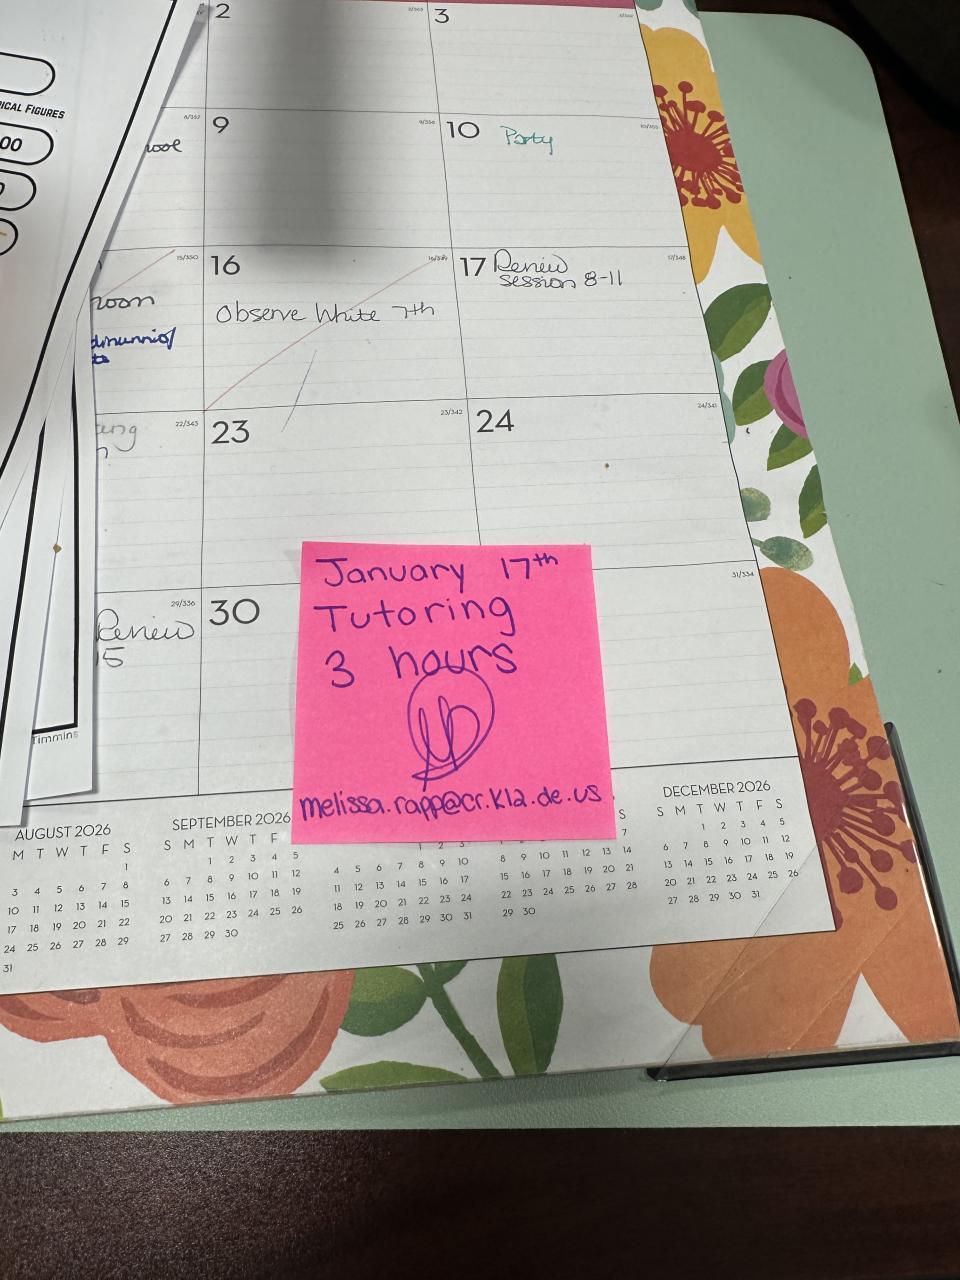 ICAL FIGURES
00
Timmins
2
3
9
9/356
10
10/355
Party
15/350
room
16
Observe White 7th
17
17/348
Review
session 8-11
22/343
23
23/342
24
24/341
29/336
Review
15
30
31/334
January 17th
Tutoring
3 hours
melissa.rapp@cr.k12.de.us
AUGUST 2026
M T W T F S
1
3 4 5 6 7 8
10 11 12 13 14 15
17 18 19 20 21 22
24 25 26 27 28 29
31
SEPTEMBER 2026
S M T W T F S
1 2 3 4 5
6 7 8 9 10 11 12
13 14 15 16 17 18 19
20 21 22 23 24 25 26
27 28 29 30
1 2 3
4 5 6 7 8 9 10
11 12 13 14 15 16 17
18 19 20 21 22 23 24
25 26 27 28 29 30 31
S
7
8 9 10 11 12 13 14
15 16 17 18 19 20 21
22 23 24 25 26 27 28
29 30
DECEMBER 2026
S M T W T F S
1 2 3 4 5
6 7 8 9 10 11 12
13 14 15 16 17 18 19
20 21 22 23 24 25 26
27 28 29 30 31